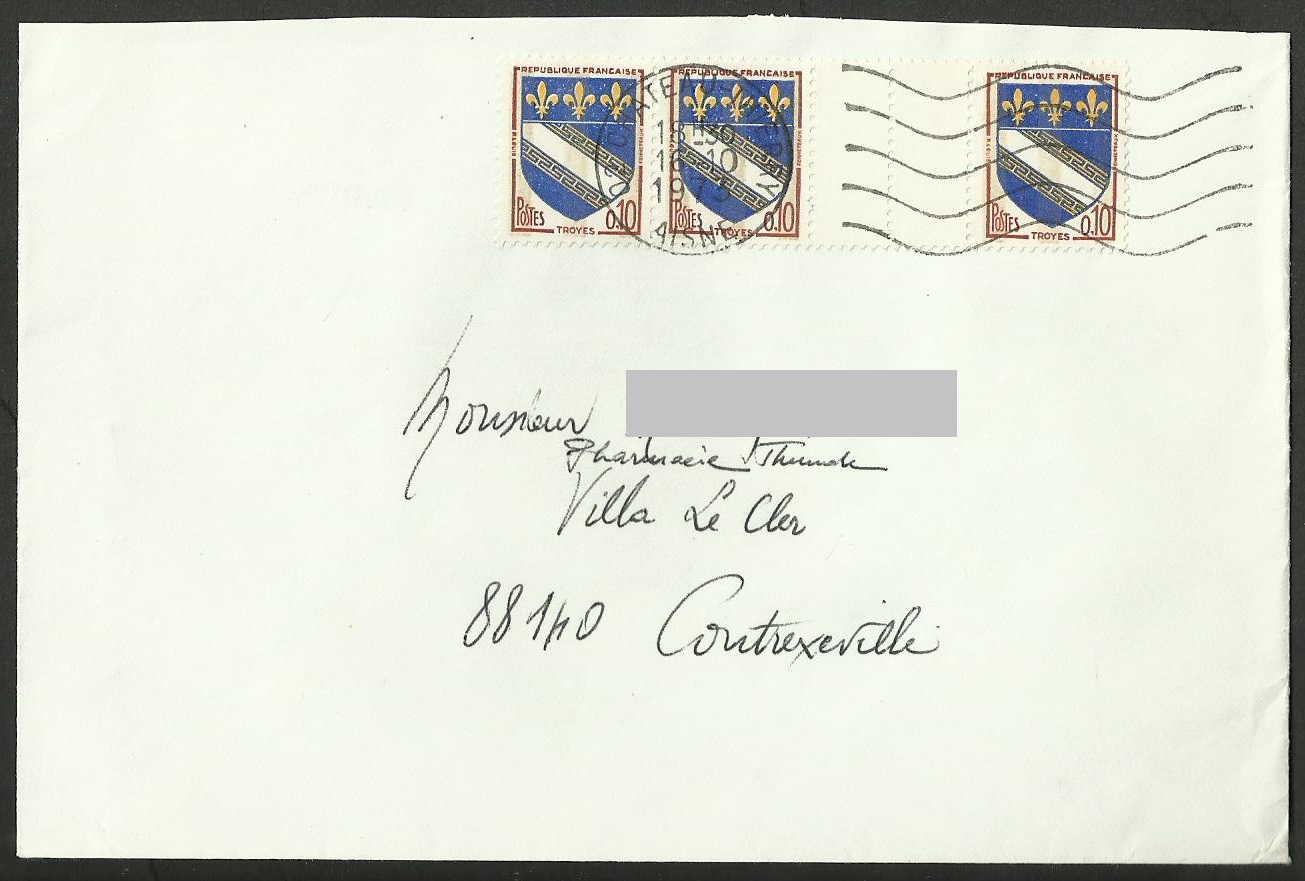 REPUBLIQUE FRANCAISE
POSTES
0.10
TROYES
REPUBLIQUE FRANCAISE
POSTES
0.10
TROYES
REPUBLIQUE FRANCAISE
POSTES
0.10
TROYES
02 CHATEAU-THIERRY
18H30
16-10
1975
AISNE
Monsieur
Pharmacie
Villa Le Cler
88140 Contrexeville